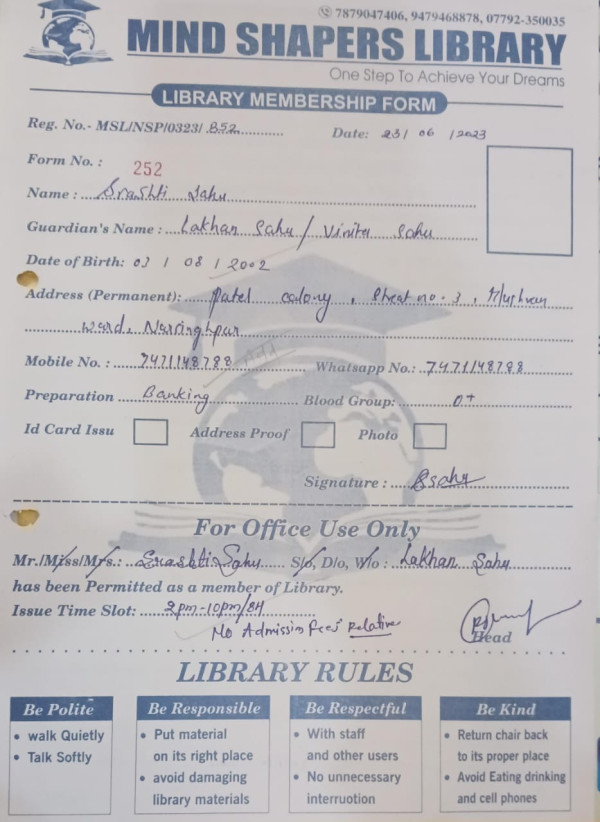 7879047406, 9479468878, 07792-350035
MIND SHAPERS LIBRARY
One Step To Achieve Your Dreams
LIBRARY MEMBERSHIP FORM
Reg. No.- MSL/NSP/0323/ B52 Date: 23/ 06 /2023
Form No. : 252
Name : Srashti Sahu
Guardian's Name : Lakhan Sahu / Vinita Sahu
Date of Birth: 03 / 08 / 2002
Address (Permanent): Patel colony, Sheat no. 3,
ward, Narsinghpur
Mobile No. : 7471148788 Whatsapp No.: 7471148788
Preparation Banking Blood Group: O+
Id Card Issu Address Proof Photo
Signature : Ssahu
For Office Use Only
Mr./Miss/Mrs.: Srashti Sahu S/o, D/o, W/o : Lakhan Sahu
has been Permitted as a member of Library.
Issue Time Slot: 2pm-10pm/8H
No Admission Fees Relative
Head
LIBRARY RULES
Be Polite Be Responsible Be Respectful Be Kind
• walk Quietly • Put material • With staff • Return chair back
• Talk Softly on its right place and other users to its proper place
• avoid damaging • No unnecessary • Avoid Eating drinking
library materials interruotion and cell phones